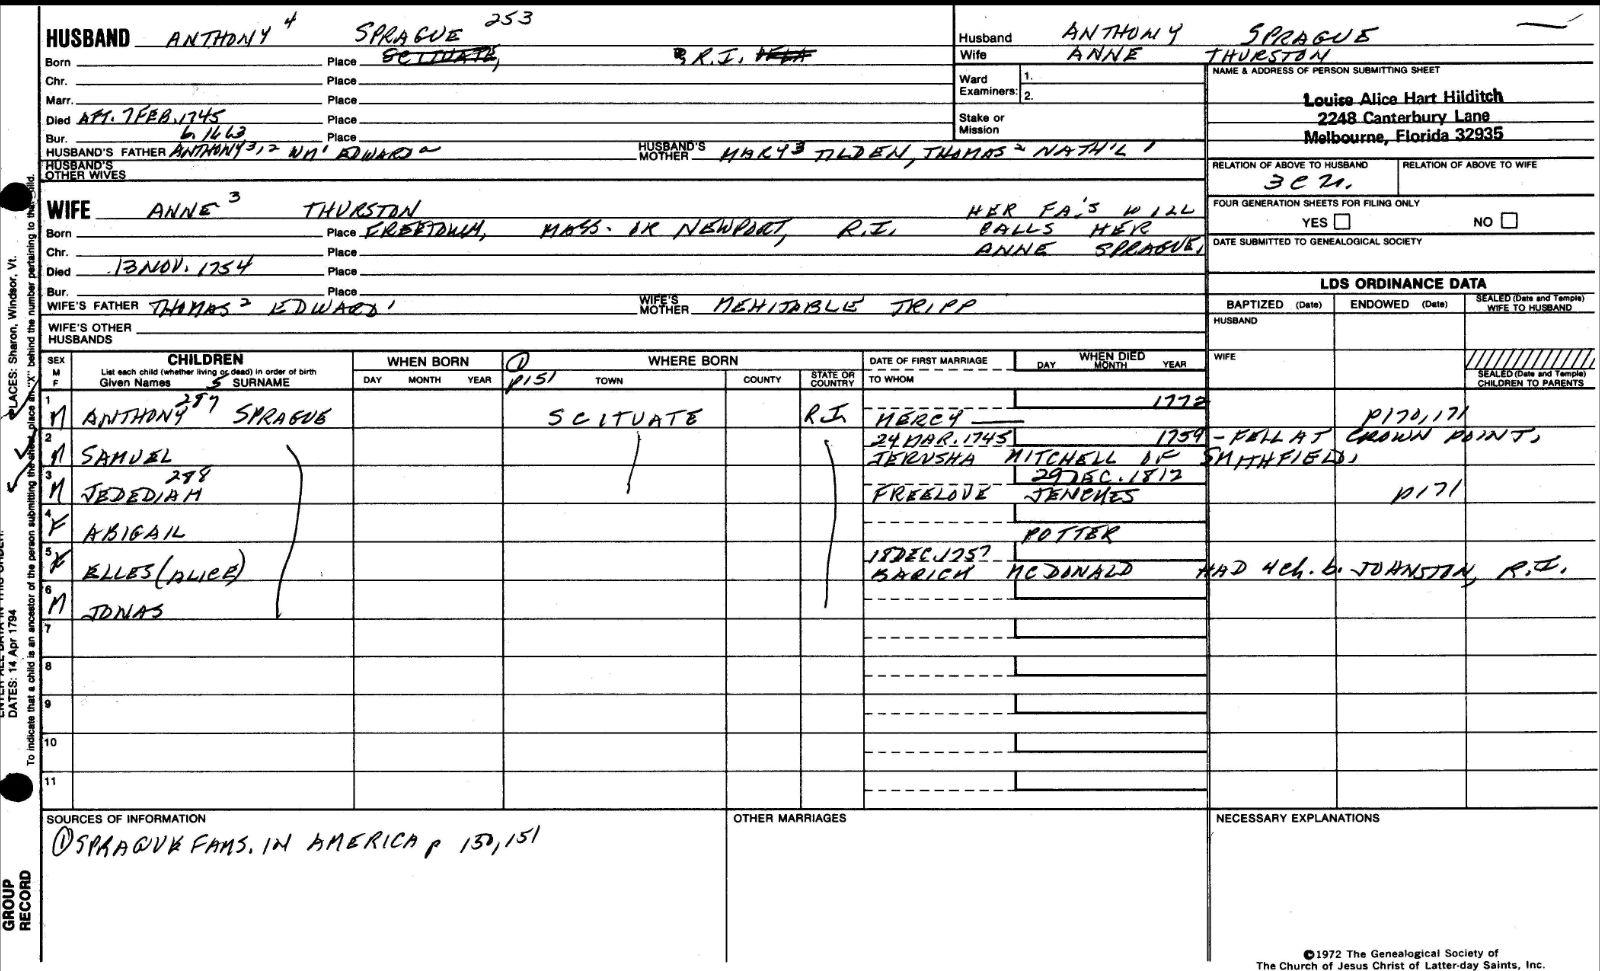 HUSBAND ANTHONY 4 SPRAGUE 253
Born Place SCITUATE, R.I.
Chr. Place
Marr. Place
Died AFT. 7 FEB. 1745 Place
Bur. b. 1663 Place
HUSBAND'S FATHER ANTHONY 3, 2 WM' EDWARD a HUSBAND'S MOTHER MARY 3 TILDEN, THOMAS 2 NATH'L 1
HUSBAND'S OTHER WIVES
Husband ANTHONY SPRAGUE
Wife ANNE THURSTON
Ward Examiners: 1.
2.
Stake or Mission
NAME & ADDRESS OF PERSON SUBMITTING SHEET
Louise Alice Hart Hilditch
2248 Canterbury Lane
Melbourne, Florida 32935
RELATION OF ABOVE TO HUSBAND RELATION OF ABOVE TO WIFE
FOUR GENERATION SHEETS FOR FILING ONLY
YES NO
DATE SUBMITTED TO GENEALOGICAL SOCIETY
WIFE ANNE 3 THURSTON HER FA'S WILL
Born Place FREETOWN, MASS. OR NEWPORT, R.I. CALLS HER
Chr. Place ANNE SPRAGUE,
Died 13 NOV. 1754 Place
Bur. Place
WIFE'S FATHER THOMAS 2 EDWARD 1 WIFE'S MOTHER MEHITABLE TRIPP
WIFE'S OTHER HUSBANDS
LDS ORDINANCE DATA
BAPTIZED (Date) ENDOWED (Date) SEALED (Date and Temple) WIFE TO HUSBAND
HUSBAND
WIFE
SEALED (Date and Temple) CHILDREN TO PARENTS
SEX M F CHILDREN WHEN BORN 1 WHERE BORN DATE OF FIRST MARRIAGE WHEN DIED
List each child (whether living or dead) in order of birth
Given Names 5 SURNAME DAY MONTH YEAR p151 TOWN COUNTY STATE OR COUNTRY TO WHOM DAY MONTH YEAR
1 M ANTHONY 287 SPRAGUE SCITUATE R.I. MERCY 1772 p170,171
2 M SAMUEL 24 MAR. 1745 1759 - FELL AT CROWN POINT,
JERUSHA MITCHELL OF SMITHFIELD,
3 M JEDEDIAH 288 FREELOVE JENCHES 29 DEC. 1812 p171
4 F ABIGAIL POTTER
5 F ELLES (ALICE) 18 DEC. 1757
BARICH MCDONALD HAD 4 ch. b. JOHNSTON, R.I.
6 M JONAS
7
8
9
10
11
SOURCES OF INFORMATION OTHER MARRIAGES NECESSARY EXPLANATIONS
① SPRAGUE FAMS. IN AMERICA p 150, 151
©1972 The Genealogical Society of
The Church of Jesus Christ of Latter-day Saints, Inc.
PLACES: Sharon, Windsor, Vt.
DATES: 14 Apr 1794
To indicate that a child is an ancestor of the person submitting the sheet, place an "X" behind the number pertaining to that child.
GROUP
RECORD